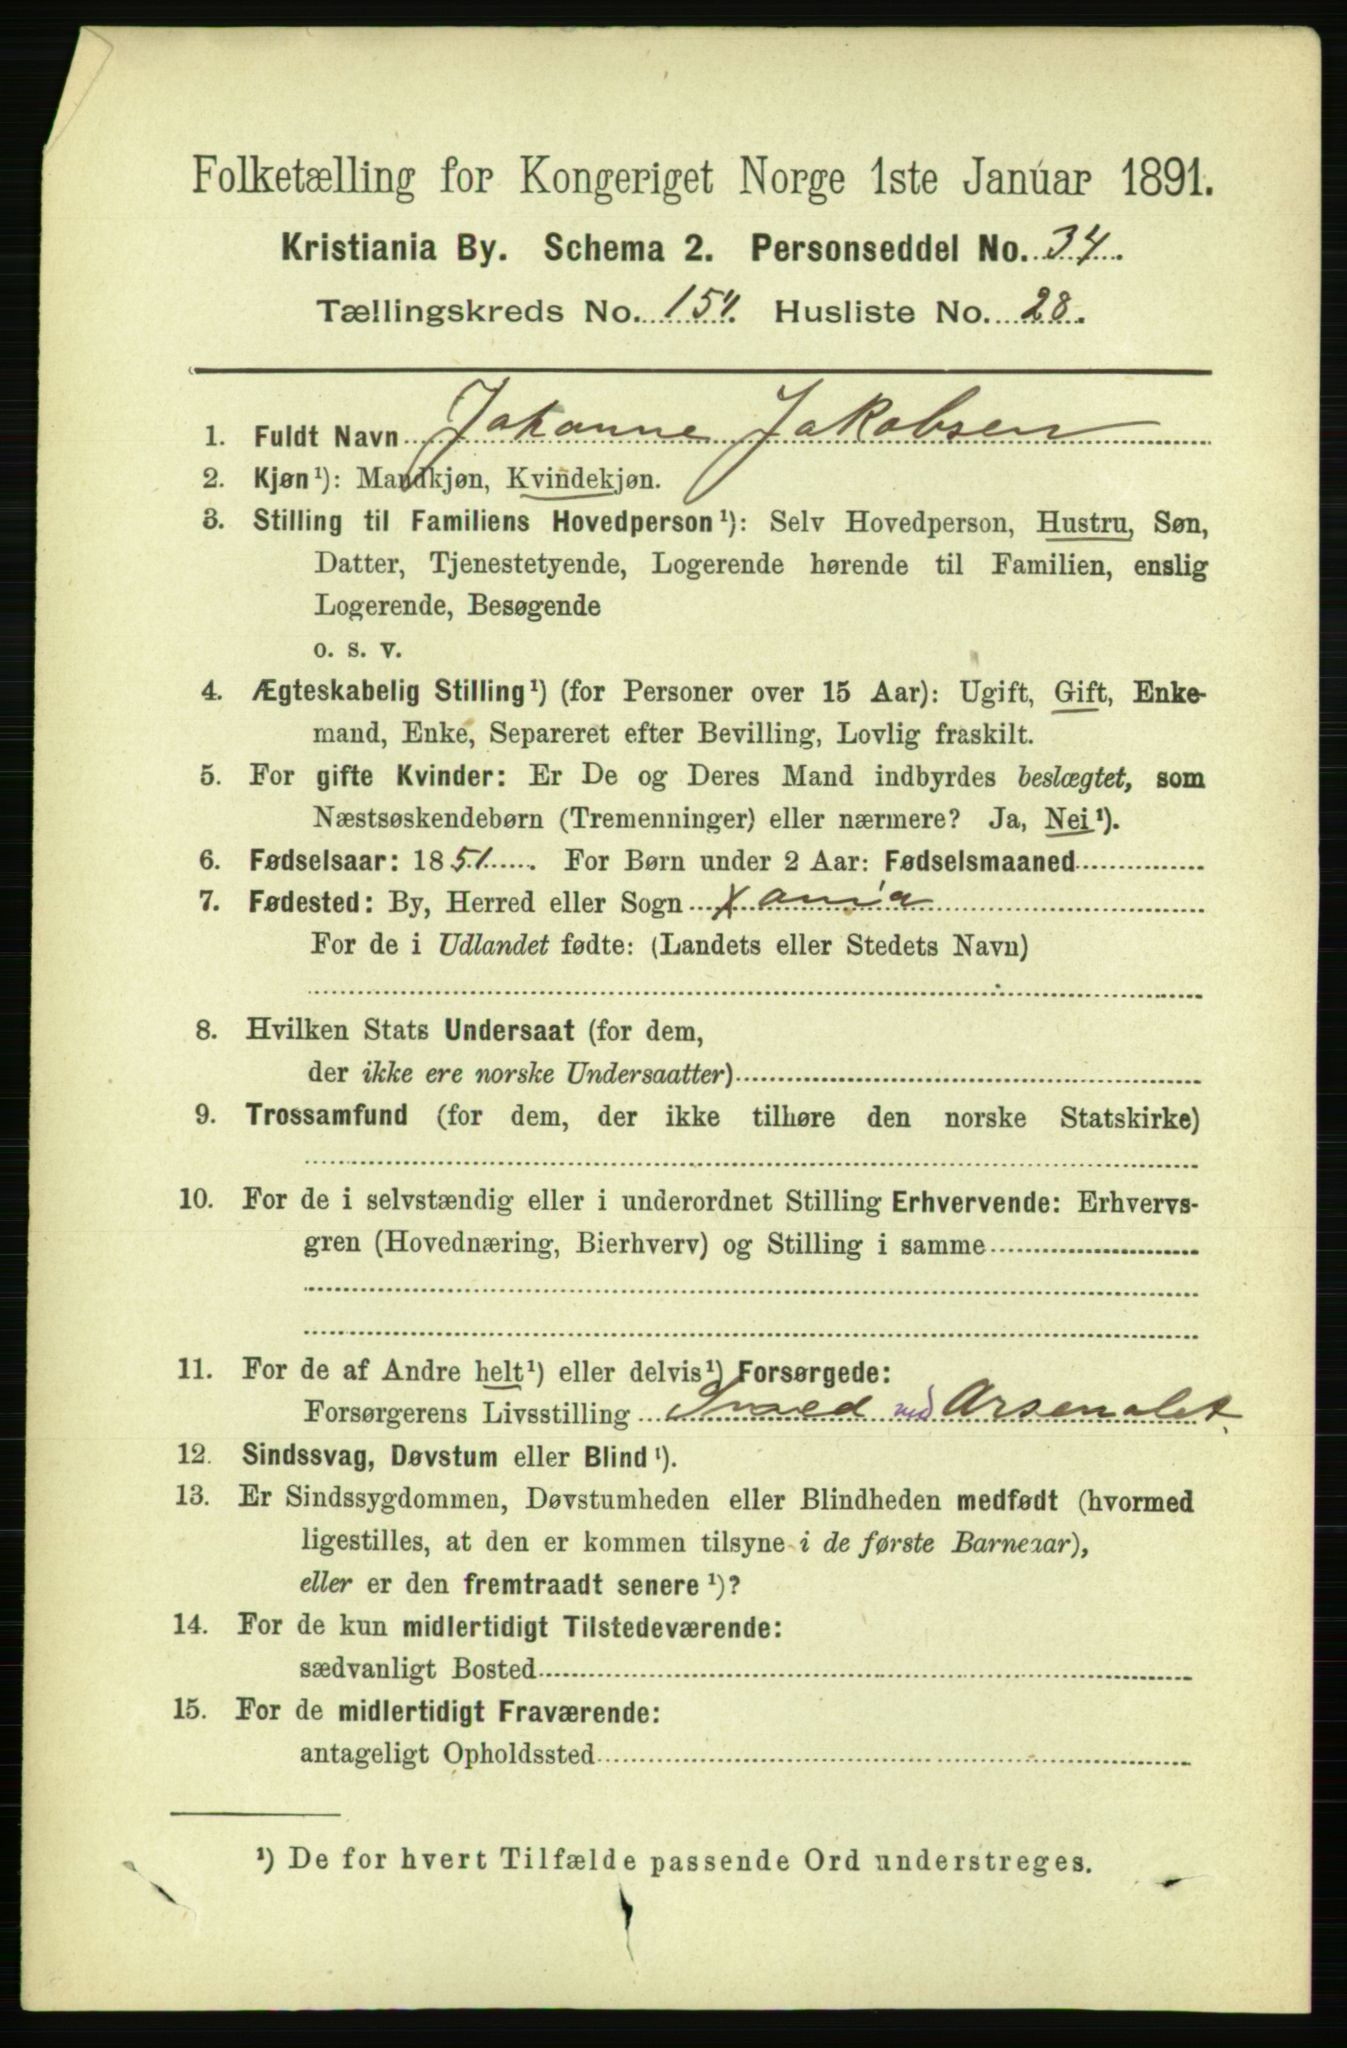 Folketælling for Kongeriget Norge 1ste Januar 1891.
Kristiania By. Schema 2. Personseddel No. 34.
Tællingskreds No. 154. Husliste No. 28.
1. Fuldt Navn Johanne Jakobsen
2. Kjøn¹): Mandkjøn, Kvindekjøn.
3. Stilling til Familiens Hovedperson¹): Selv Hovedperson, Hustru, Søn,
Datter, Tjenestetyende, Logerende hørende til Familien, enslig
Logerende, Besøgende
o. s. v.
4. Ægteskabelig Stilling¹) (for Personer over 15 Aar): Ugift, Gift, Enke-
mand, Enke, Separeret efter Bevilling, Lovlig fraskilt.
5. For gifte Kvinder: Er De og Deres Mand indbyrdes beslægtet, som
Næstsøskendebørn (Tremenninger) eller nærmere? Ja, Nei¹).
6. Fødselsaar: 1851. For Børn under 2 Aar: Fødselsmaaned
7. Fødested: By, Herred eller Sogn Xania
For de i Udlandet fødte: (Landets eller Stedets Navn)
8. Hvilken Stats Undersaat (for dem,
der ikke ere norske Undersaatter)
9. Trossamfund (for dem, der ikke tilhøre den norske Statskirke)
10. For de i selvstændig eller i underordnet Stilling Erhvervende: Erhvervs-
gren (Hovednæring, Bierhverv) og Stilling i samme
11. For de af Andre helt¹) eller delvis¹) Forsørgede:
Forsørgerens Livsstilling Smed ved Arsenalet.
12. Sindssvag, Døvstum eller Blind¹).
13. Er Sindssygdommen, Døvstumheden eller Blindheden medfødt (hvormed
ligestilles, at den er kommen tilsyne i de første Barneaar),
eller er den fremtraadt senere¹)?
14. For de kun midlertidigt Tilstedeværende:
sædvanligt Bosted
15. For de midlertidigt Fraværende:
antageligt Opholdssted
¹) De for hvert Tilfælde passende Ord understreges.